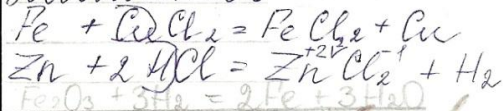 Fe + CuCl₂ = FeCl₂ + Cu
Zn + 2HCl = Zn⁺²Cl₂⁻¹ + H₂
Fe₂O₃ + 3H₂ = 2Fe + 3H₂O